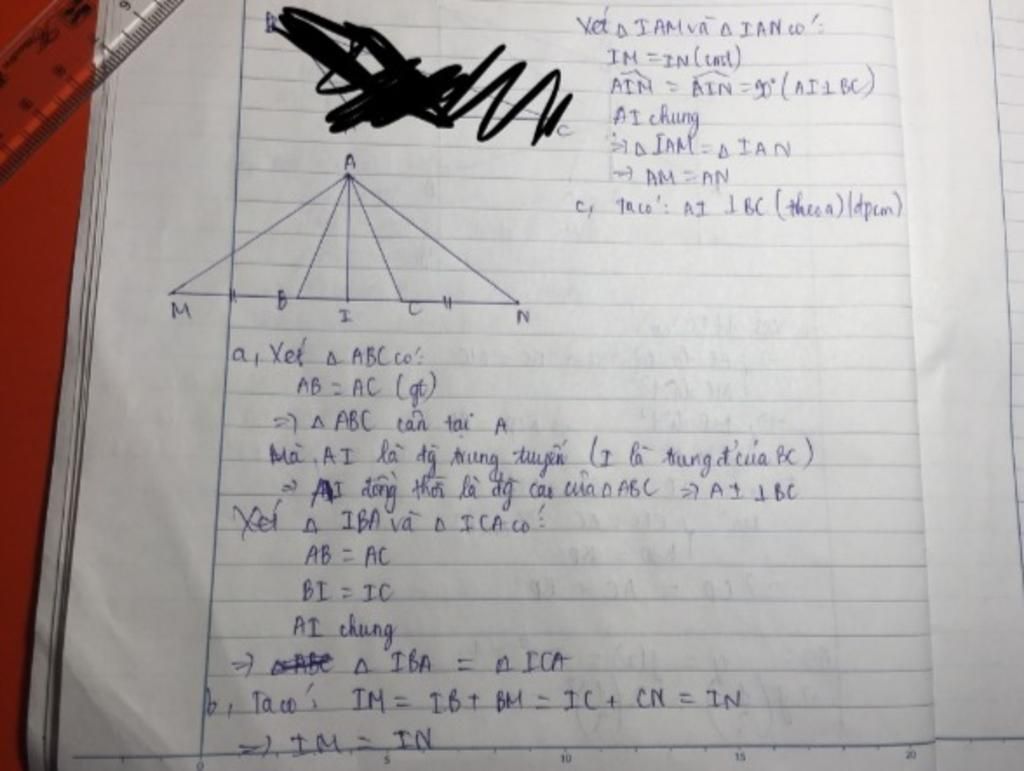 Xét △ IAM và △ IAN có:
IM = IN (cmt)
AIM = AIN = 90° (AI⊥BC)
AI chung
=> △ IAM = △ IAN
=> AM = AN
c, Ta có: AI ⊥ BC (theo a) (đpcm)
C
A
M B I C N
a, Xét △ ABC có:
AB = AC (gt)
=> △ ABC cân tại A
Mà AI là đg trung tuyến (I là trung đ' của BC)
=> AI đồng thời là đg cao của △ABC => AI ⊥ BC
Xét △ IBA và △ ICA có:
AB = AC
BI = IC
AI chung
=> △ IBA = △ ICA
b, Ta có: IM = IB + BM = IC + CN = IN
=> IM = IN
0 5 10 15 20